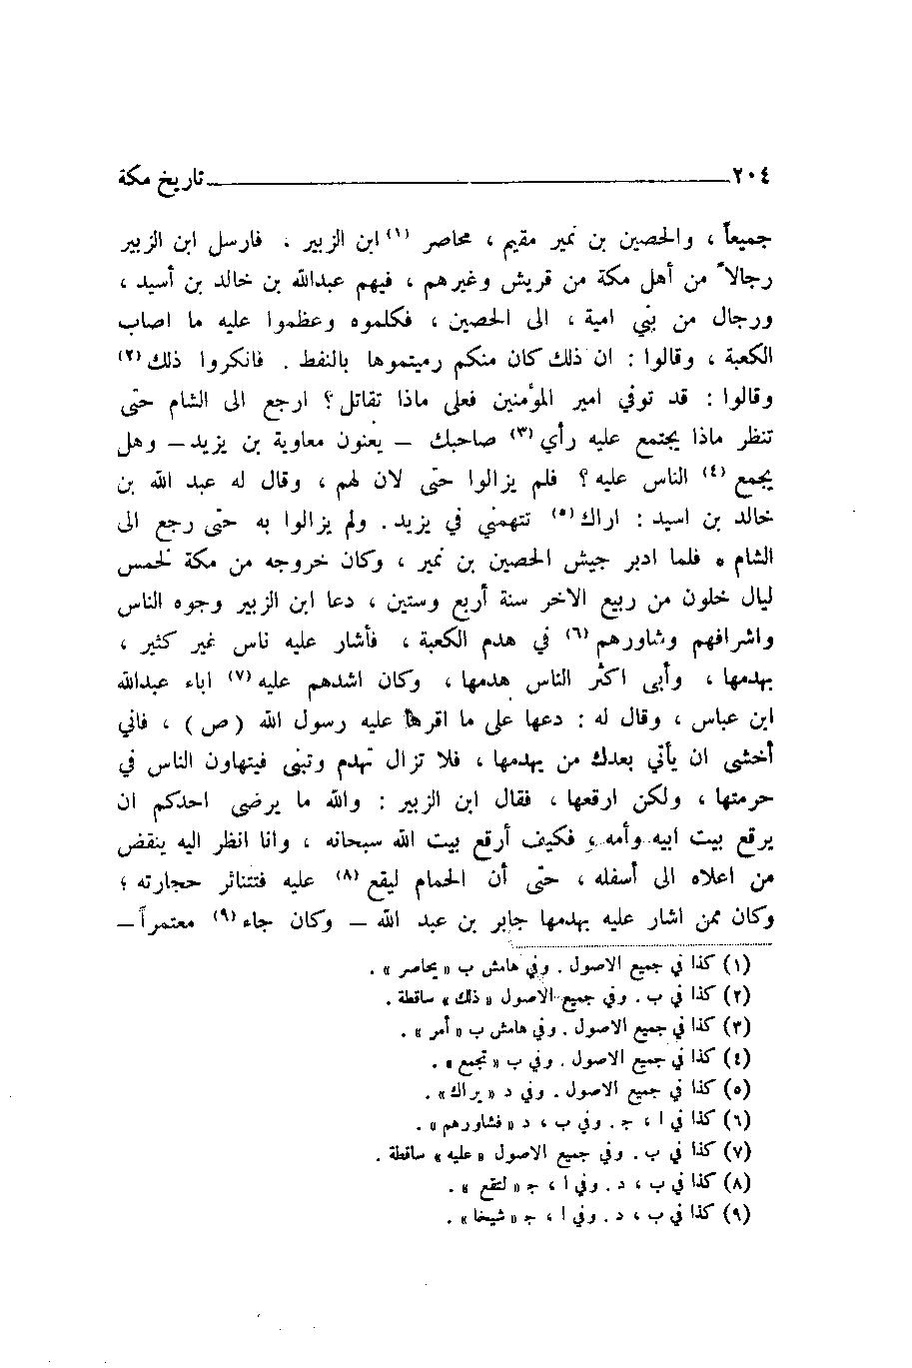 ٢٠٤ تاريخ مكة
جميعاً ، والحصين بن نمير مقيم ، محاصر (١) ابن الزبير . فارسل ابن الزبير
رجالاً من أهل مكة من قريش وغيرهم ، فيهم عبدالله بن خالد بن أسيد ،
ورجال من بني امية ، الى الحصين ، فكلموه وعظموا عليه ما اصاب
الكعبة ، وقالوا : ان ذلك كان منكم رميتموها بالنفط . فانكروا ذلك (٢)
وقالوا : قد توفي امير المؤمنين فعلى ماذا تقاتل ؟ ارجع الى الشام حتى
تنظر ماذا يجتمع عليه رأي (٣) صاحبك – يعنون معاوية بن يزيد – وهل
يجمع (٤) الناس عليه ؟ فلم يزالوا حتى لان لهم ، وقال له عبد الله بن
خالد بن اسيد : اراك (٥) تتهمني في يزيد . ولم يزالوا به حتى رجع الى
الشام * فلما ادبر جيش الحصين بن نمير ، وكان خروجه من مكة لخمس
ليال خلون من ربيع الاخر سنة أربع وستين ، دعا ابن الزبير وجوه الناس
واشرافهم وشاورهم (٦) في هدم الكعبة ، فأشار عليه ناس غير كثير ،
بهدمها ، وأبى اكثر الناس هدمها ، وكان اشدهم عليه (٧) اباء عبدالله
ابن عباس ، وقال له : دعها على ما اقرها عليه رسول الله ( ص ) ، فاني
أخشى ان يأتي بعدك من يهدمها ، فلا تزال تهدم وتبنى فيتهاون الناس في
حرمتها ، ولكن ارقعها ، فقال ابن الزبير : والله ما يرضى احدكم ان
يرقع بيت ابيه وأمه ، فكيف أرقع بيت الله سبحانه ، وانا انظر اليه ينقض
من اعلاه الى أسفله ، حتى أن الحمام ليقع (٨) عليه فتتناثر حجارته ؛
وكان ممن اشار عليه بهدمها جابر بن عبد الله – وكان جاء (٩) معتمراً –
(١) كذا في جميع الاصول . وفي هامش ب « يحاصر » .
(٢) كذا في ب . وفي جميع الاصول « ذلك » ساقطة .
(٣) كذا في جميع الاصول . وفي هامش ب « أمر » .
(٤) كذا في جميع الاصول . وفي ب « تجمع » .
(٥) كذا في جميع الاصول . وفي د « يراك » .
(٦) كذا في ا ، ج . وفي ب ، د « فشاورهم » .
(٧) كذا في ب . وفي جميع الاصول « عليه » ساقطة .
(٨) كذا في ب ، د . وفي ا ، ج « لتقع » .
(٩) كذا في ب ، د . وفي ا ، ج « شيخا » .